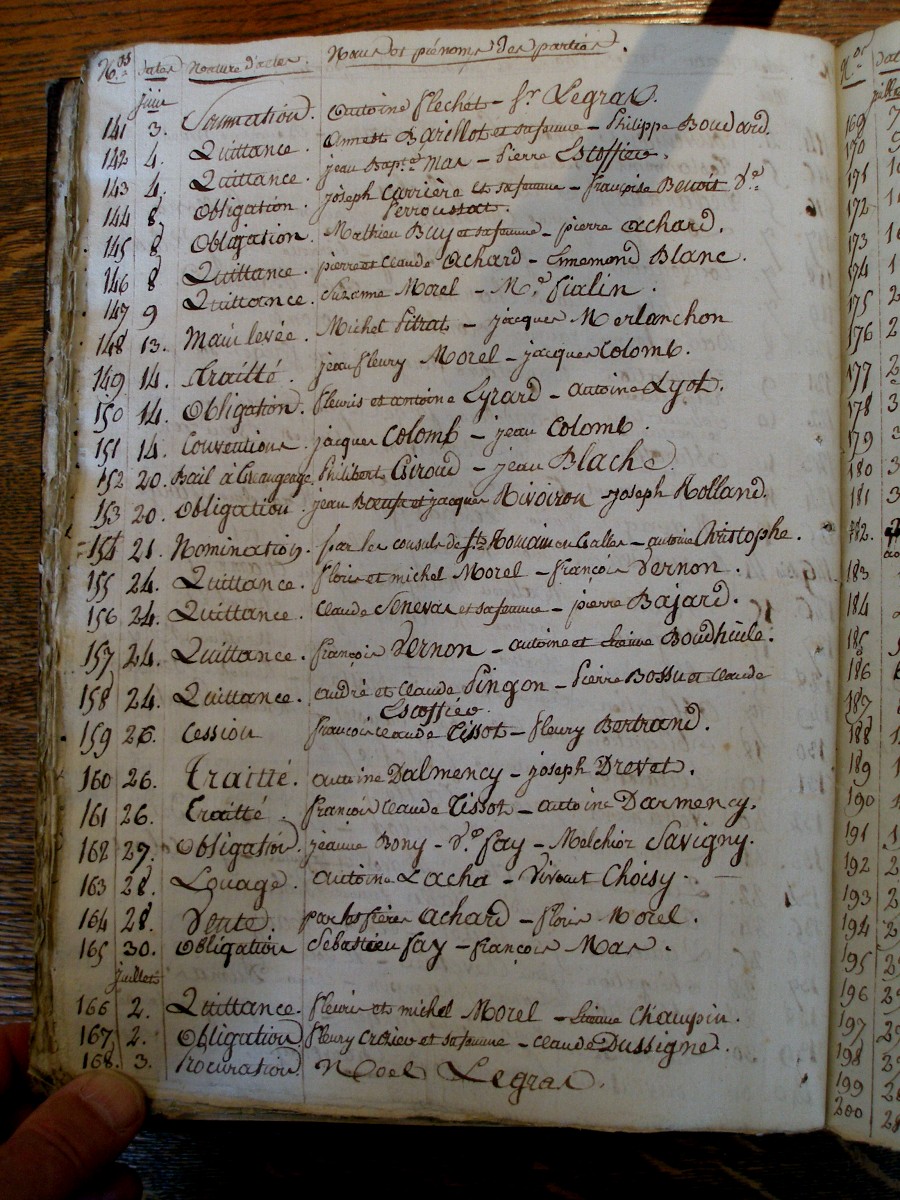 N.os dates Nature d'actes. Noms et prénoms des parties.
juin
141 3. Sommation. antoine flechet - fr. Legras.
142 4. Quittance. annet Barillot et sa femme - Philippe Boudard.
143 4. Quittance. jean Bap.te mas - Pierre Escoffier.
144 8 Obligation. joseph Carrière et sa femme - françoise Benoit v.e
Perroussat.
145 8 Obligation. Mathieu Buy et sa femme - pierre achard.
146 8 Quittance. pierre et claude achard - Ennemond Blanc.
147 9 Quittance. Suzanne Morel - M.e fialin.
148 13. Main levée. Michel Pitrat - jacques Merlanchon
149 14. Traitté. jean fleury Morel - jacques Colomb.
150 14. Obligation. fleuris et antoine Eyrard - antoine Lyot.
151 14. Conventions jacques Colomb - jean Colomb.
152 20. Bail à Grangeage. Philibert Giroud - jean Blache.
153 20. Obligation. jean Boeuf et jacques Rivoiron joseph Rolland.
154 21. Nomination. par les consuls de St. Romain - antoine Christophe.
155 24. Quittance. floris et michel Morel - françois Vernon.
156 24. Quittance. Claude Senevas et sa femme - pierre Bajard.
157 24. Quittance. françois Vernon - antoine et Boudhiule.
158 24. Quittance. andré et Claude Pingon - Pierre Bossu et claude
Escoffier.
159 26. Cession françois claude Tissot - fleury Bertrand.
160 26. Traitté. antoine Dalmency - joseph Drevet.
161 26. Traitté. françois claude Tissot - antoine Darmency.
162 27. Obligation. jeanne Bony - v.e fay - Melchior Savigny.
163 28. Louage. antoine Lacha - Vivant Choisy.
164 28. Vente. par les frères achard - floris Morel.
165 30. Obligation Sebastien fay - françois Mas.
juillet
166 2. Quittance. fleuris et michel Morel - Etienne Chaupin.
167 2. Obligation. fleury Crozier et sa femme - claude Dussigne.
168. 3. Procuration. Noel Legras.
N.os
169
170
171
172
173
174
175
176
177
178
179
180
181
182.
183
184
185
186
187
188
189
190
191
192
193
194
195
196
197
198
199
200